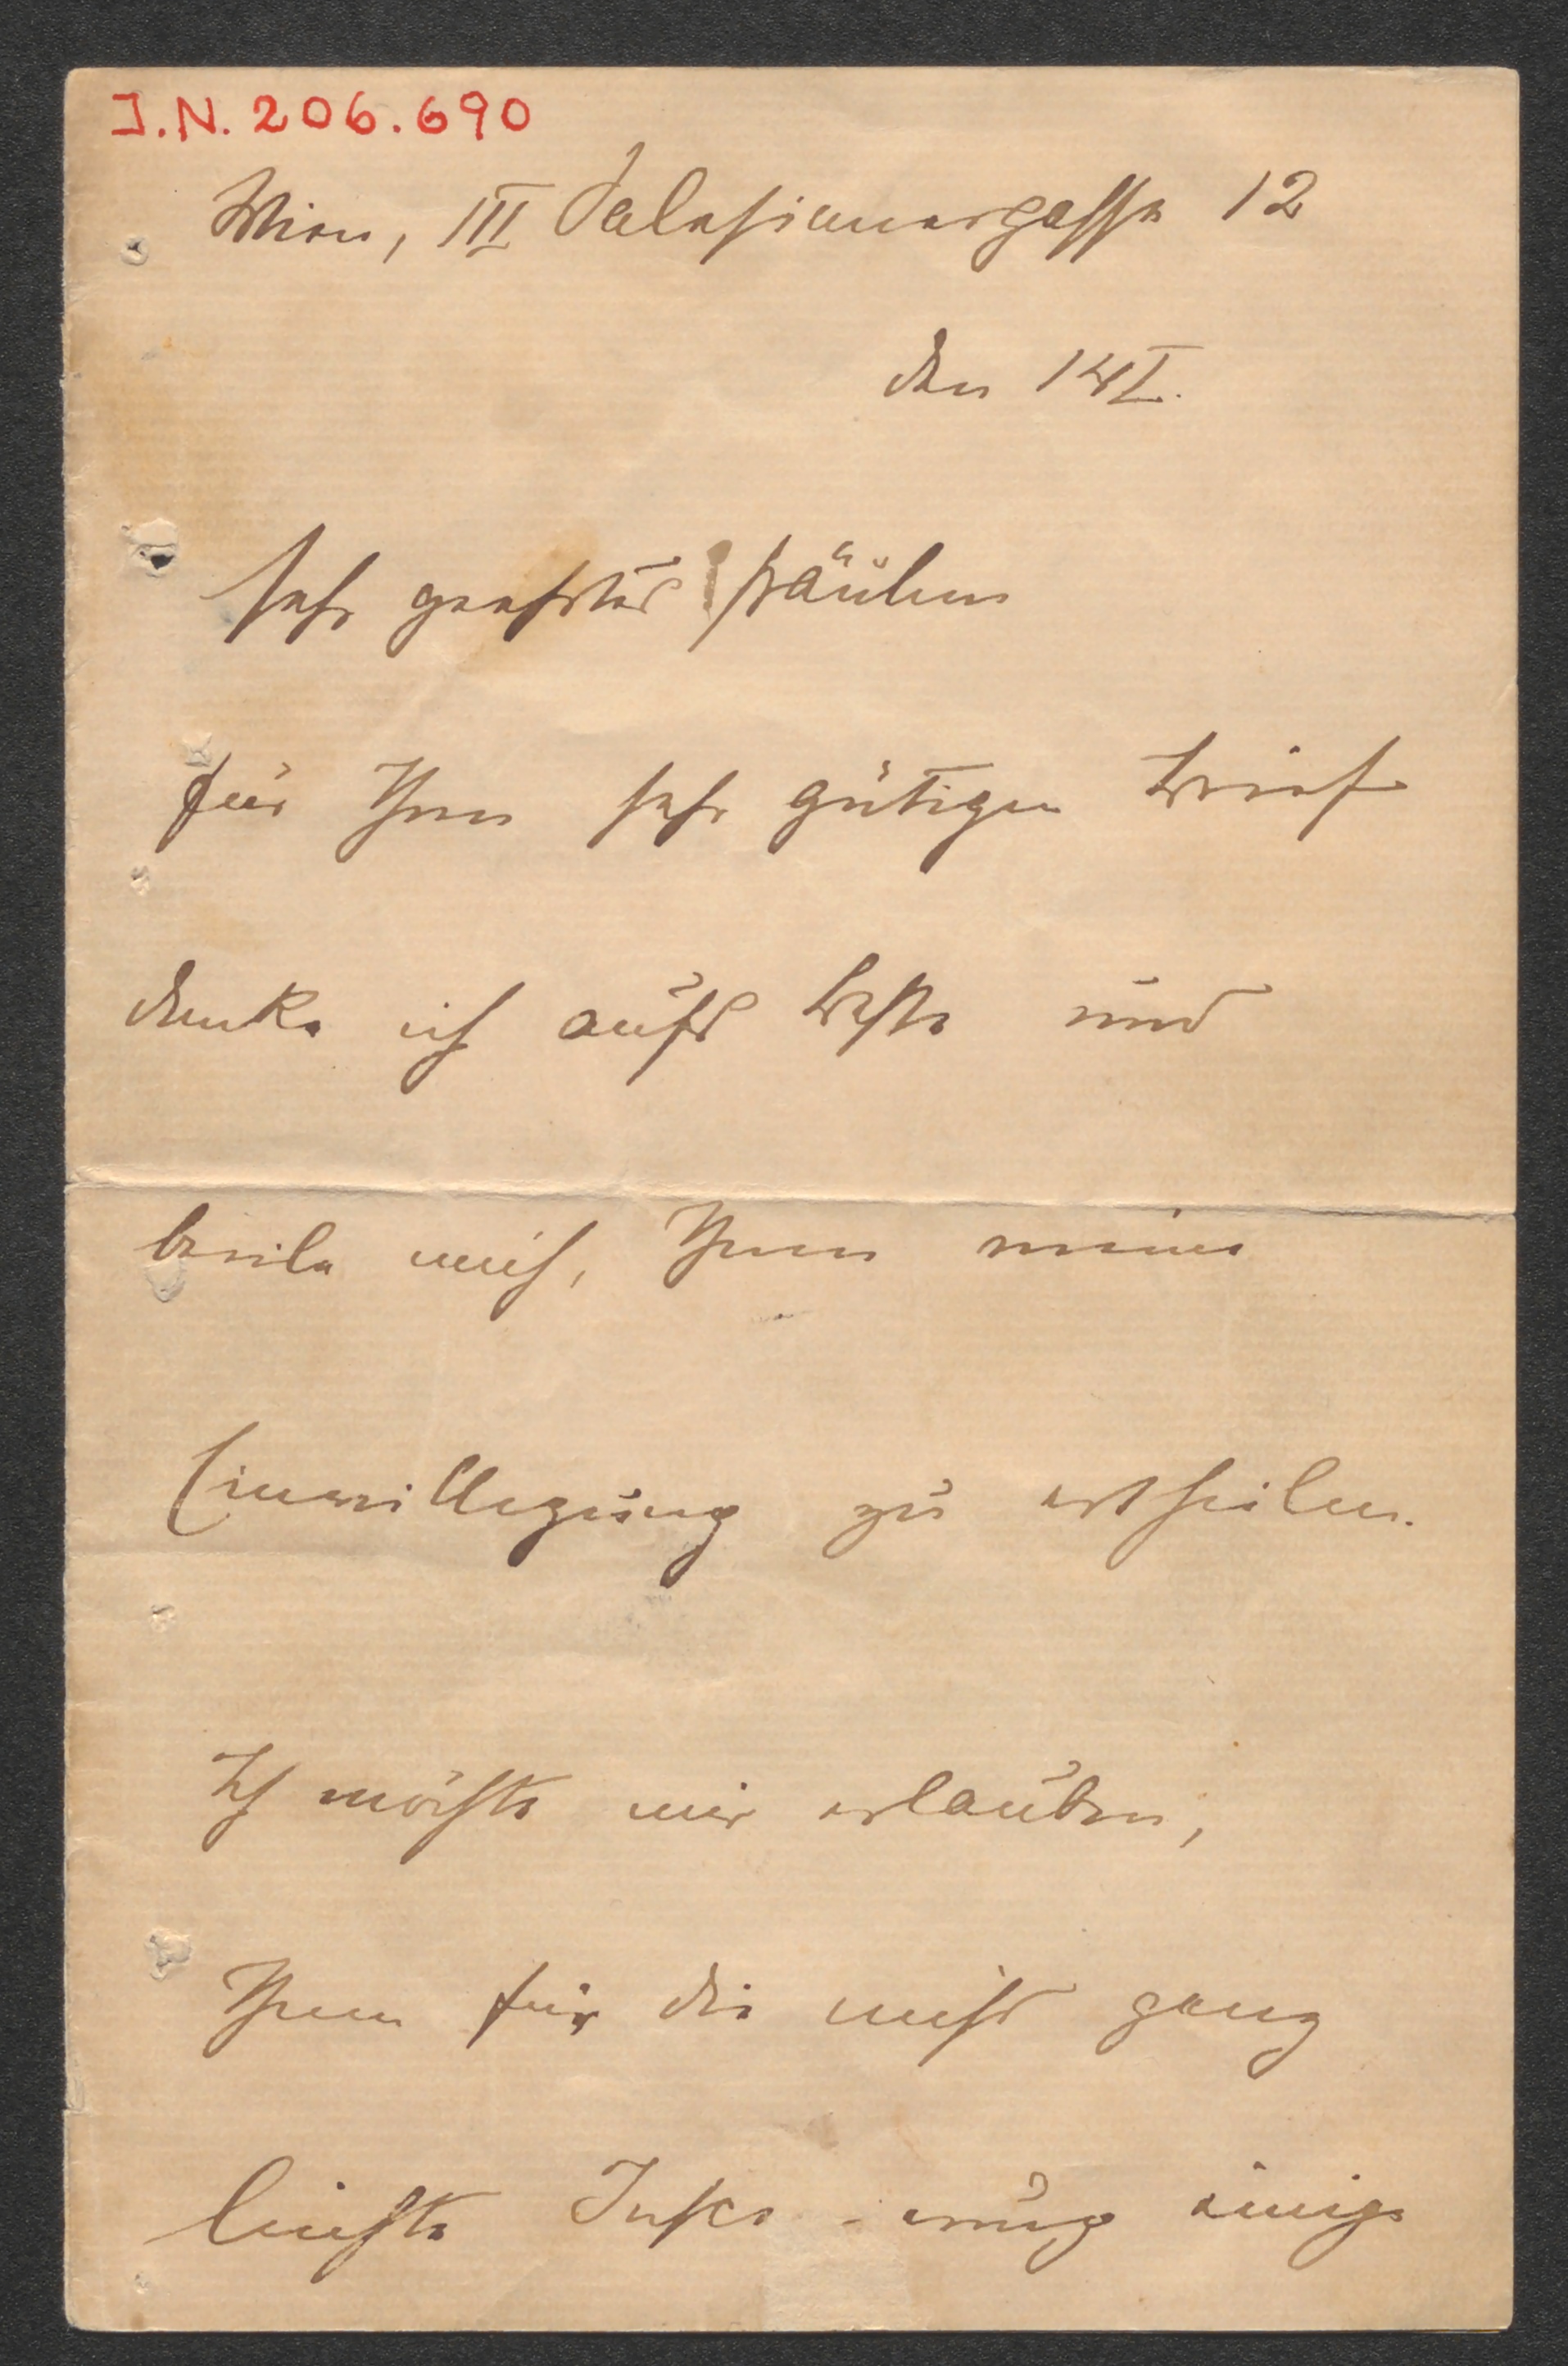 I.N. 206.690
Wien, III Salesianergasse 12
den 14 I.
sehr geehrtes Fräulein
für Ihren sehr gütigen Brief
danke ich aufs beste und
beeile mich, Ihnen meine
Einwilligung zu ertheilen.
Ich möchte mir erlauben,
Ihnen für die nicht ganz
leichte Insce- nierung einige